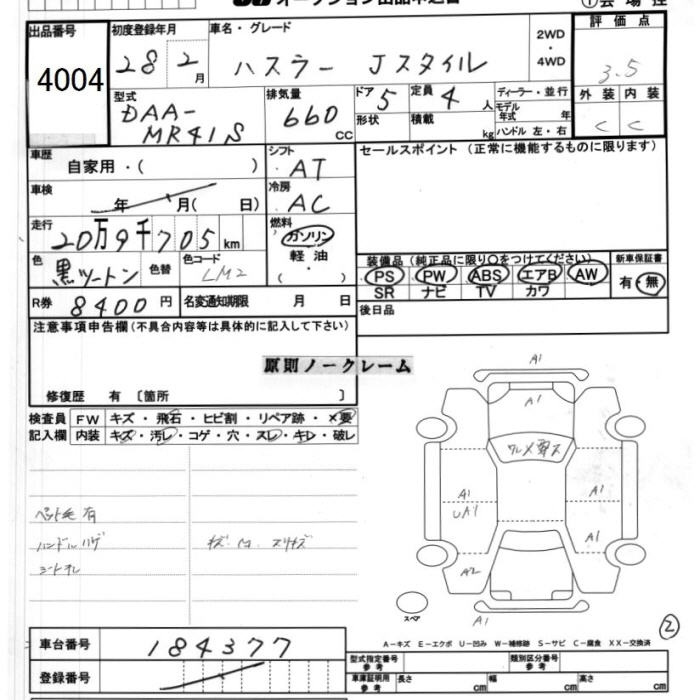 オークション出品申込書
会場控
出品番号 4004
初度登録年月 28 2月
車名・グレード ハスラー Jスタイル
2WD・4WD
評価点 3.5
型式 DAA-MR41S
排気量 660 CC
ドア 5
定員 4 人
形状
積載 kg
ディーラー・並行
モデル年式 年
ハンドル 左・右
外装 C 内装 C
車歴 自家用・( )
シフト AT
セールスポイント (正常に機能するものに限ります)
車検 年 月( 日)
冷房 AC
走行 20万9千705km
燃料 ガソリン 軽油 ( ・ )
色 黒ツートン 色替
色コード LM2
装備品 (純正品に限り○をつけてください)
新車保証書 有・無
PS PW ABS エアB AW
SR ナビ TV カワ
R券 8400円
名変通知期限 月 日
後日品
注意事項申告欄(不具合内容等は具体的に記入して下さい)
原則ノークレーム
修復歴 有 [箇所 ]
検査員記入欄
FW キズ・飛石・ヒビ割・リペア跡・×要
内装 キズ・汚レ・コゲ・穴・スレ・キレ・破レ
ペット毛有
ハンドルハゲ
シートオレ
A1
A1
A1
UA1
A1
A1
A2
スペア
A1
2
A-キズ E-エクボ U-凹み W-補修跡 S-サビ C-腐食 XX-交換済
車台番号 184377
登録番号
型式指定番号 参考
類別区分番号 参考
車庫証明用 参考 長さ cm 幅 cm 高さ cm